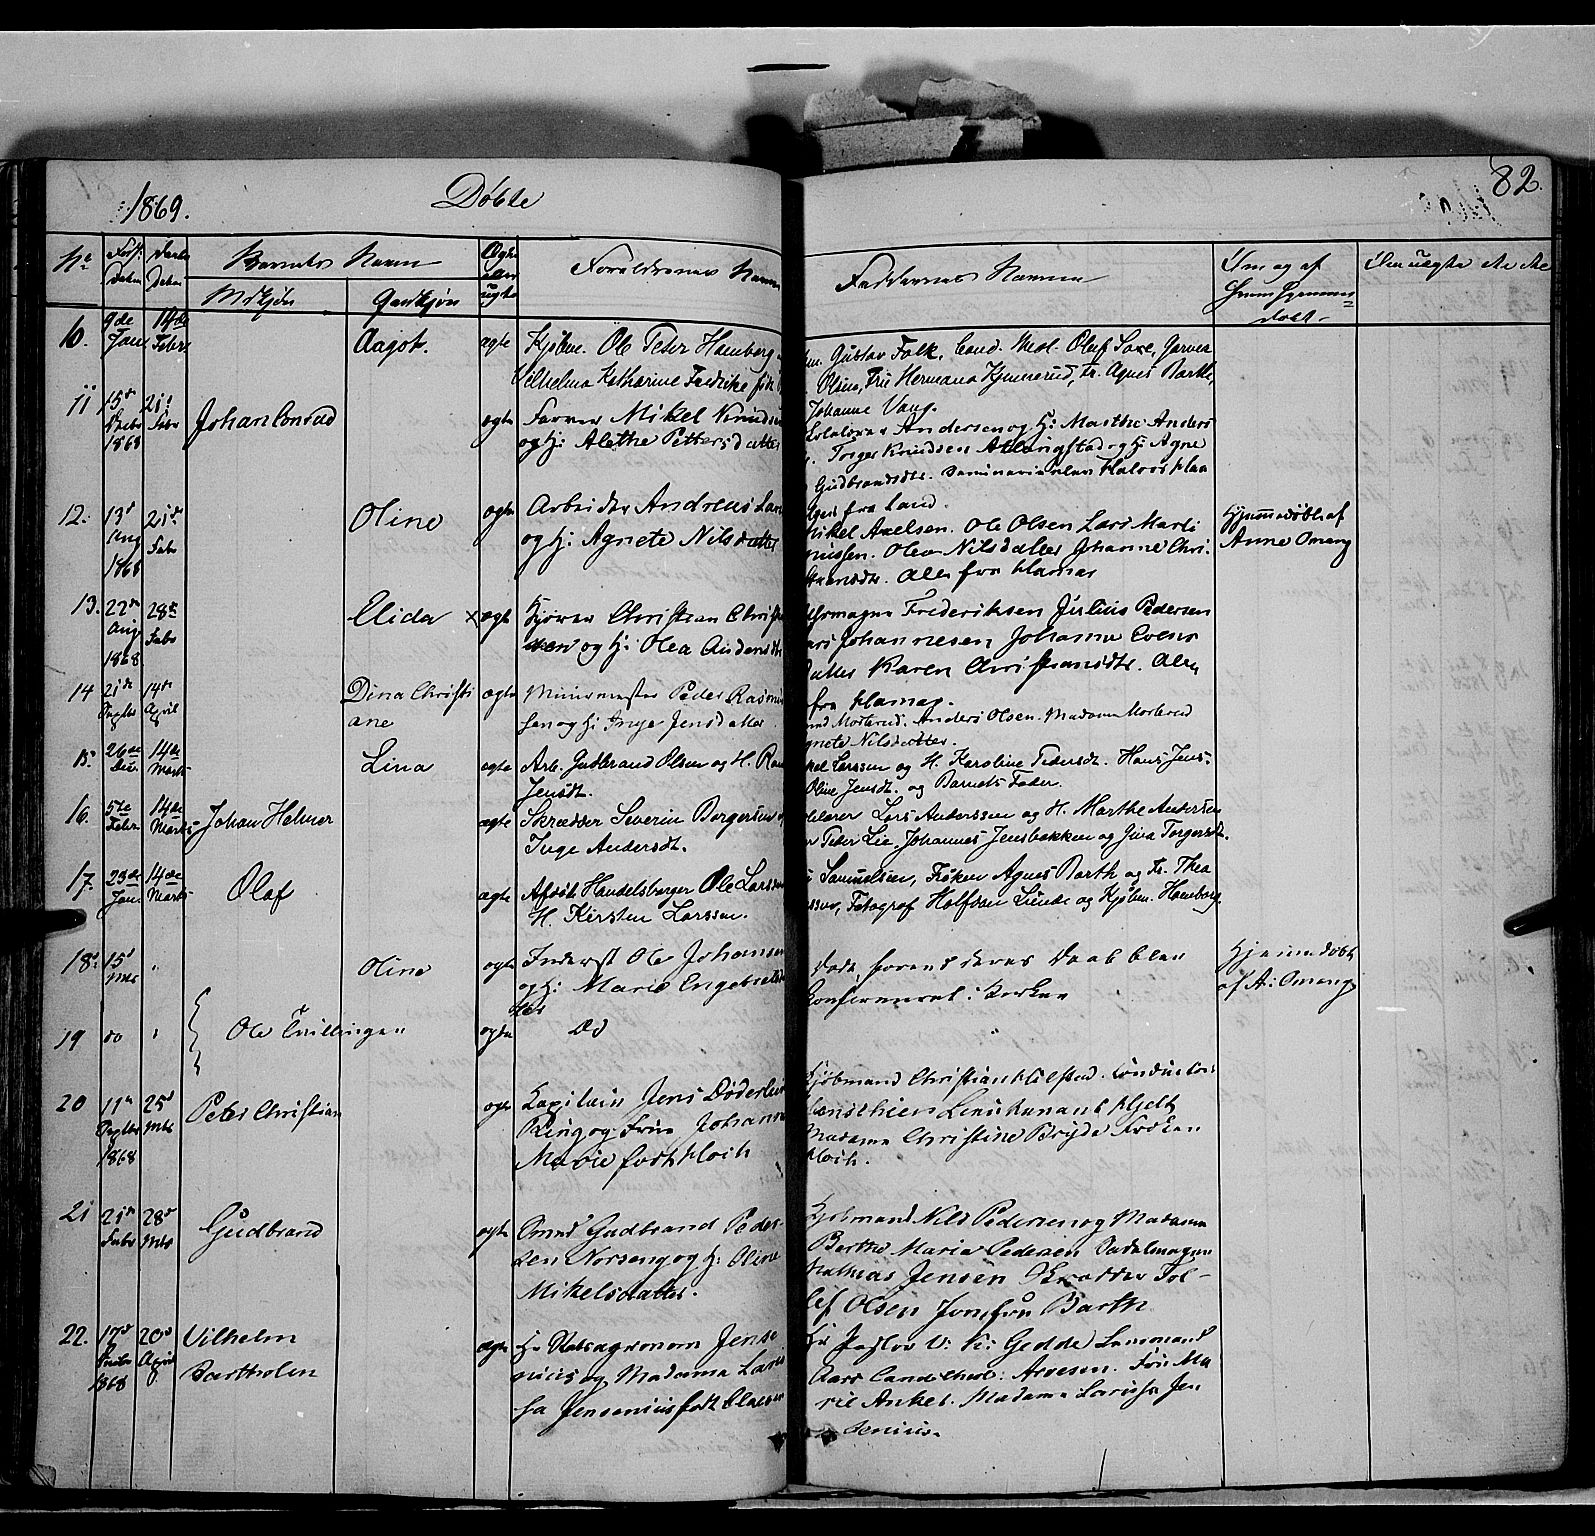 1869.
Døbte
82.
No
Døbte
Daten
Barnets Navn
Mdkjøn
Qvdkjøn
Ægte
uægte
Forældrenes Navne
Faddernes Navne
Om og af
hvem hjemme=
døbt.
10. 9de Jan 14de Febr Aagot. ægte Kjøbm. Ole Peter Hamborg
Vilhelma Katharine Fredrike født
Gustav Falk, Cand. Med. Oluf Saxe, Garver
Olsine, Frk Hermana Kjennerud, Fr. Agnes Barth,
Johanne Vang.
11 15d Decbr 1868 21d Febr Johan Conrad ægte Farver Mikel Knudsen
og H: Alethe Pettersdatter
Andersen og H: Marthe Anders
Torger Knudsen Atlungstad og H: Agne
Gudbrandsdtr. Seminarieelev Halvor
fra Land.
12. 13d Aug 1868 21de Febr Oline ægte Arbeider Andreas Lars
og H: Agnete Nilsdatter
Mikel Axelsen. Ole Olsen Lars Marti
nussen. Olea Nilsdatter Johanne Chri-
stiansdtr. Alle fra Hamar
Hjemmedøbt af
Anne Omeng
13. 22de Aug 1868 28de Febr Elida × ægte Kjører Christian Christ
sen og H: Olea Andersdtr
Uhrmager Frederiksen Julius Pedersen
Lars Johannesen Johanne Evens
datter Karen Christiansdtr. Alle
fra Hamar.
14 21de Septbr 14de April Dina Christi
ane ægte Murmester Peder Rasmus
sen og H: Inge Jensdatter.
Morterud. Anders Olsen. Madam Morterud
Agnete Nilsdatter.
15. 26de Dec. 14de Marts Lina ægte Arb. Gudbrand Olsen og H.
Jensdt.
Larssen og H. Karoline Pedersdt. Hans Jens-
Oline Jensdt. og Barnets Fader.
16. 5te Febr 14de Marts Johan Helmer ægte Skrædder Severin Borgersen
Inge Andersdt.
Lars Anderssen og H. Marthe Andersen
Peder Lie. Johannes Jensbakken og Gina Torgersdt.
17. 23de Jan. 14de Marts Olaf ægte Afdøde Handelsborger Ole Larssen
H. Kirsten Larssen.
Samuelsen, Frøken Agnes Barth og Fr. Thea
Fotograf Halfdan Lunde og Kjøbm. Hamborg.
18. 15d Mts " Oline ægte Inderst Ole Johansen
og H: Marie Engebretsdat
ter
Døde, forend deres Daab blev
Konfirmeret i Kirken
Hjemmedøbt
af A: Omeng
19 do " Ole Tvillinger ægte Do
20 11te Septbr 1868 25d Mts Peter Christian ægte Kaptain Jens Døderlein
Ring og Frue Johanne
Marie født Kloch
Kjøbmand Christian Hilstad. Conductør
Lieutenant Hjelt
Madame Christine Bryde Frøken
Kloch.
21 21de Febr 28d Mts Gudbrand ægte Smed Gudbrand Peder-
sen Norseng og H: Oline
Mikelsdatter.
Kjøbmand Nils Pedersen og Madame
Berthe Marie Pedersen Sadelmager
Mathias Jensen Skrædder Tol-
lef Olsen Jomfru Barth
22. 17d 1868 20d April Vilhelm
Bartholin ægte Hr Statsagronom Jense
nius og Madame Laris
sa Jensenius født
Hr Pastor V: K: Gedde Lensmand
Aars Cand theol: Arvesen. Frk. Ma
rie Anker. Madame Larissa Jen
senius.